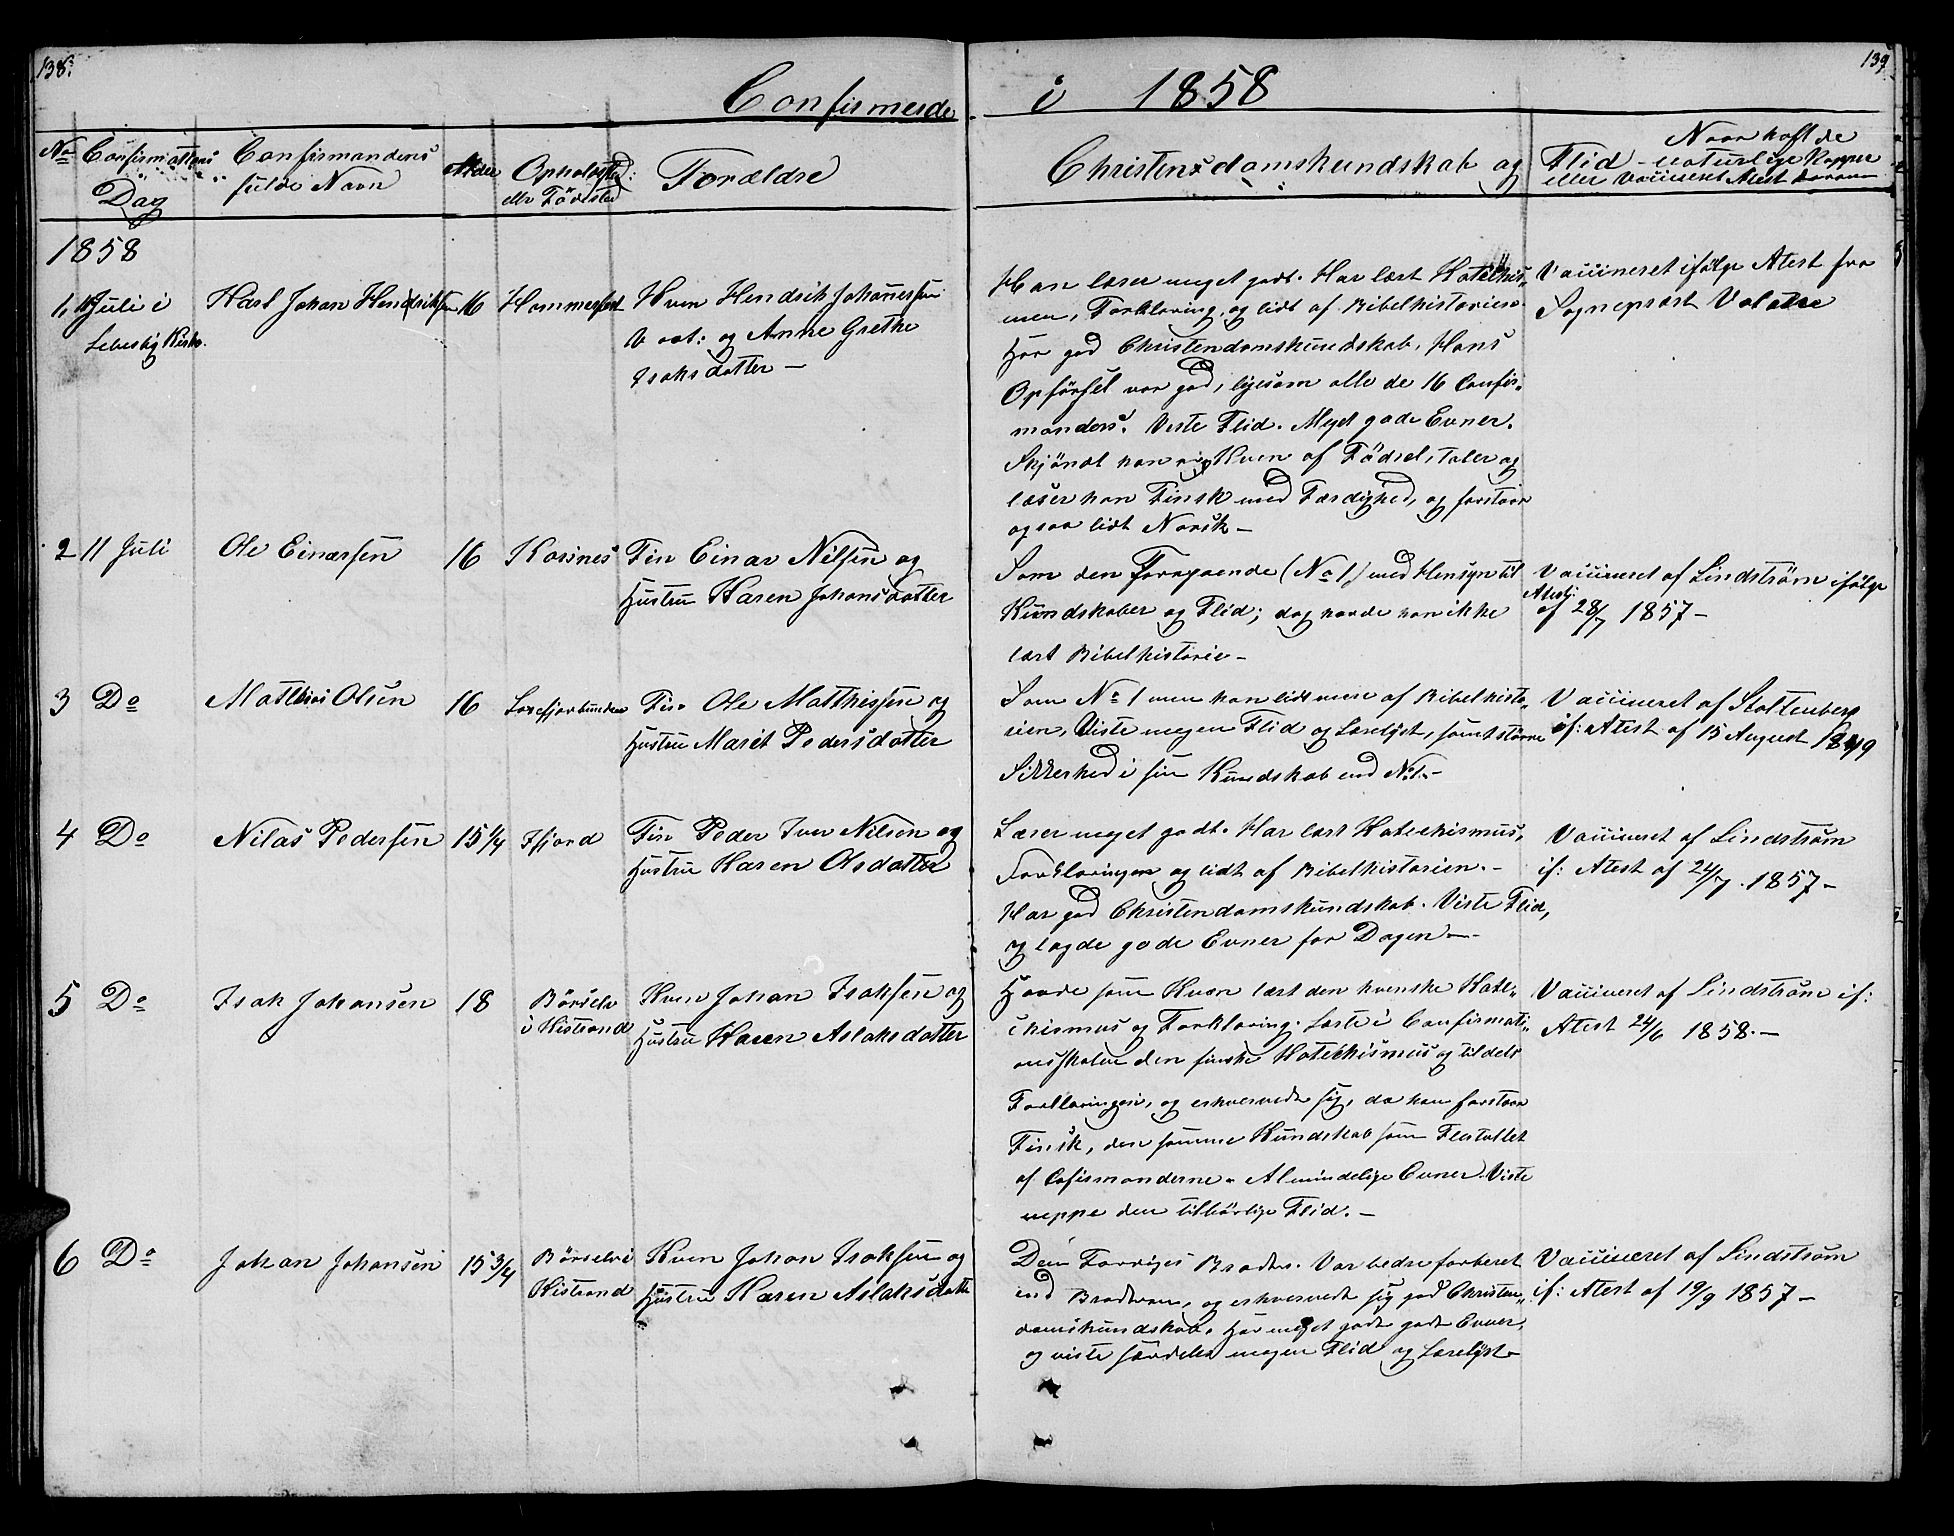 138.
139
Confirmerde i 1858
No
Confirmations Dag
Confirmandens fulde Navn
Alder
Opholdssted eller Födested
Forældre
Christendomskundskab og Flid
Naar havt de naturlige Kopper eller Vaccineret Atest derom
1858
1, 11 Juli i Lebesby Kirke.
Karl Johan Hendriksen
16
Hammerfest
Kven Hendrik Johannessen
og Anne Grethe
Isaksdatter —
Han læser meget godt. Har lært Katekis-
men, Forklaring, og lidt af Bibelhistorien.
Har god Christendomskundskab. Hans
Opförsel var god, ligesom alle de 16 Confir-
manders. Viste Flid. Meget gode Evner.
Skjöndt han er Kven af Födsel, taler og
læser han Finsk med Færdighed, og forstaar
ogsaa lidt Norsk —
Vaccineret ifölge Atest fra
Sogneprest
2
11 Juli
Ole Einarsen
16
Kosnes
Fin Einar Nilsen og
Hustru Karen Johansdatter
Som den Foregaaende (No 1) med Hensyn til
Kundskaber og Flid; dog havde han ikke
lært Bibelhistorie —
Vaccineret af Lindström ifölge
Atest af 28/7 1857 —
3
Do
Mathias Olsen
16
Laxefjordbunden
Fin Ole Matthissen og
Hustru Marit Pedersdatter
Som No 1 men kan lidt mere af Bibelhisto-
rien, Viste megen Flid og Læselyst, samt större
Sikkerhed i sin Kundskab end No 1. —
Vaccineret af Stoltenberg
if: Atest af 15 August 1849
4
Do
Nilas Pedersen
15 1/4
Ifjord
Fin Peder Iver Nilsen og
Hustru Karen Olsdatter
Læser meget godt. Har lært Katechismus,
Forklaringen og lidt af Bibelhistorien. —
Har god Christendomskundskab. Viste Flid,
og lagde gode Evner for Dagen —
Vaccineret af Lindström
if: Atest af 24/7. 1857 —
5
Do
Isak Johansen
18
Börselv
i Kistrand
Kven Johan Isaksen og
Hustru Karen Aslaksdatter
Havde som Kvæn lært den kvenske Kate-
chismus og Forklaring. Læste i Confirmati-
onsskolen den finske Katechismus og tildels
Forklaringen, og erhvervede sig, da han forstaar
Finsk, den samme Kundskab som Flertallet
af Cofirmanderne. Almindelige Evner. Viste
neppe den tilbörlige Flid. —
Vaccineret af Lindström if:
Atest 24/6 1858. —
6
Do
Johan Johansen
15 3/4
Börselv i
Kistrand
Kven Johan Isaksen og
Hustru Karen Aslaksdatter
Den Forriges Broder. Var bedre forberet
end Broderen, og erhvervede sig god Christen-
domskundskab. Har meget godt gode Evner,
og viste særdeles megen Flid og Læselyst —
Vaccineret af Lindström
if: Atest af 19/9 1857 —